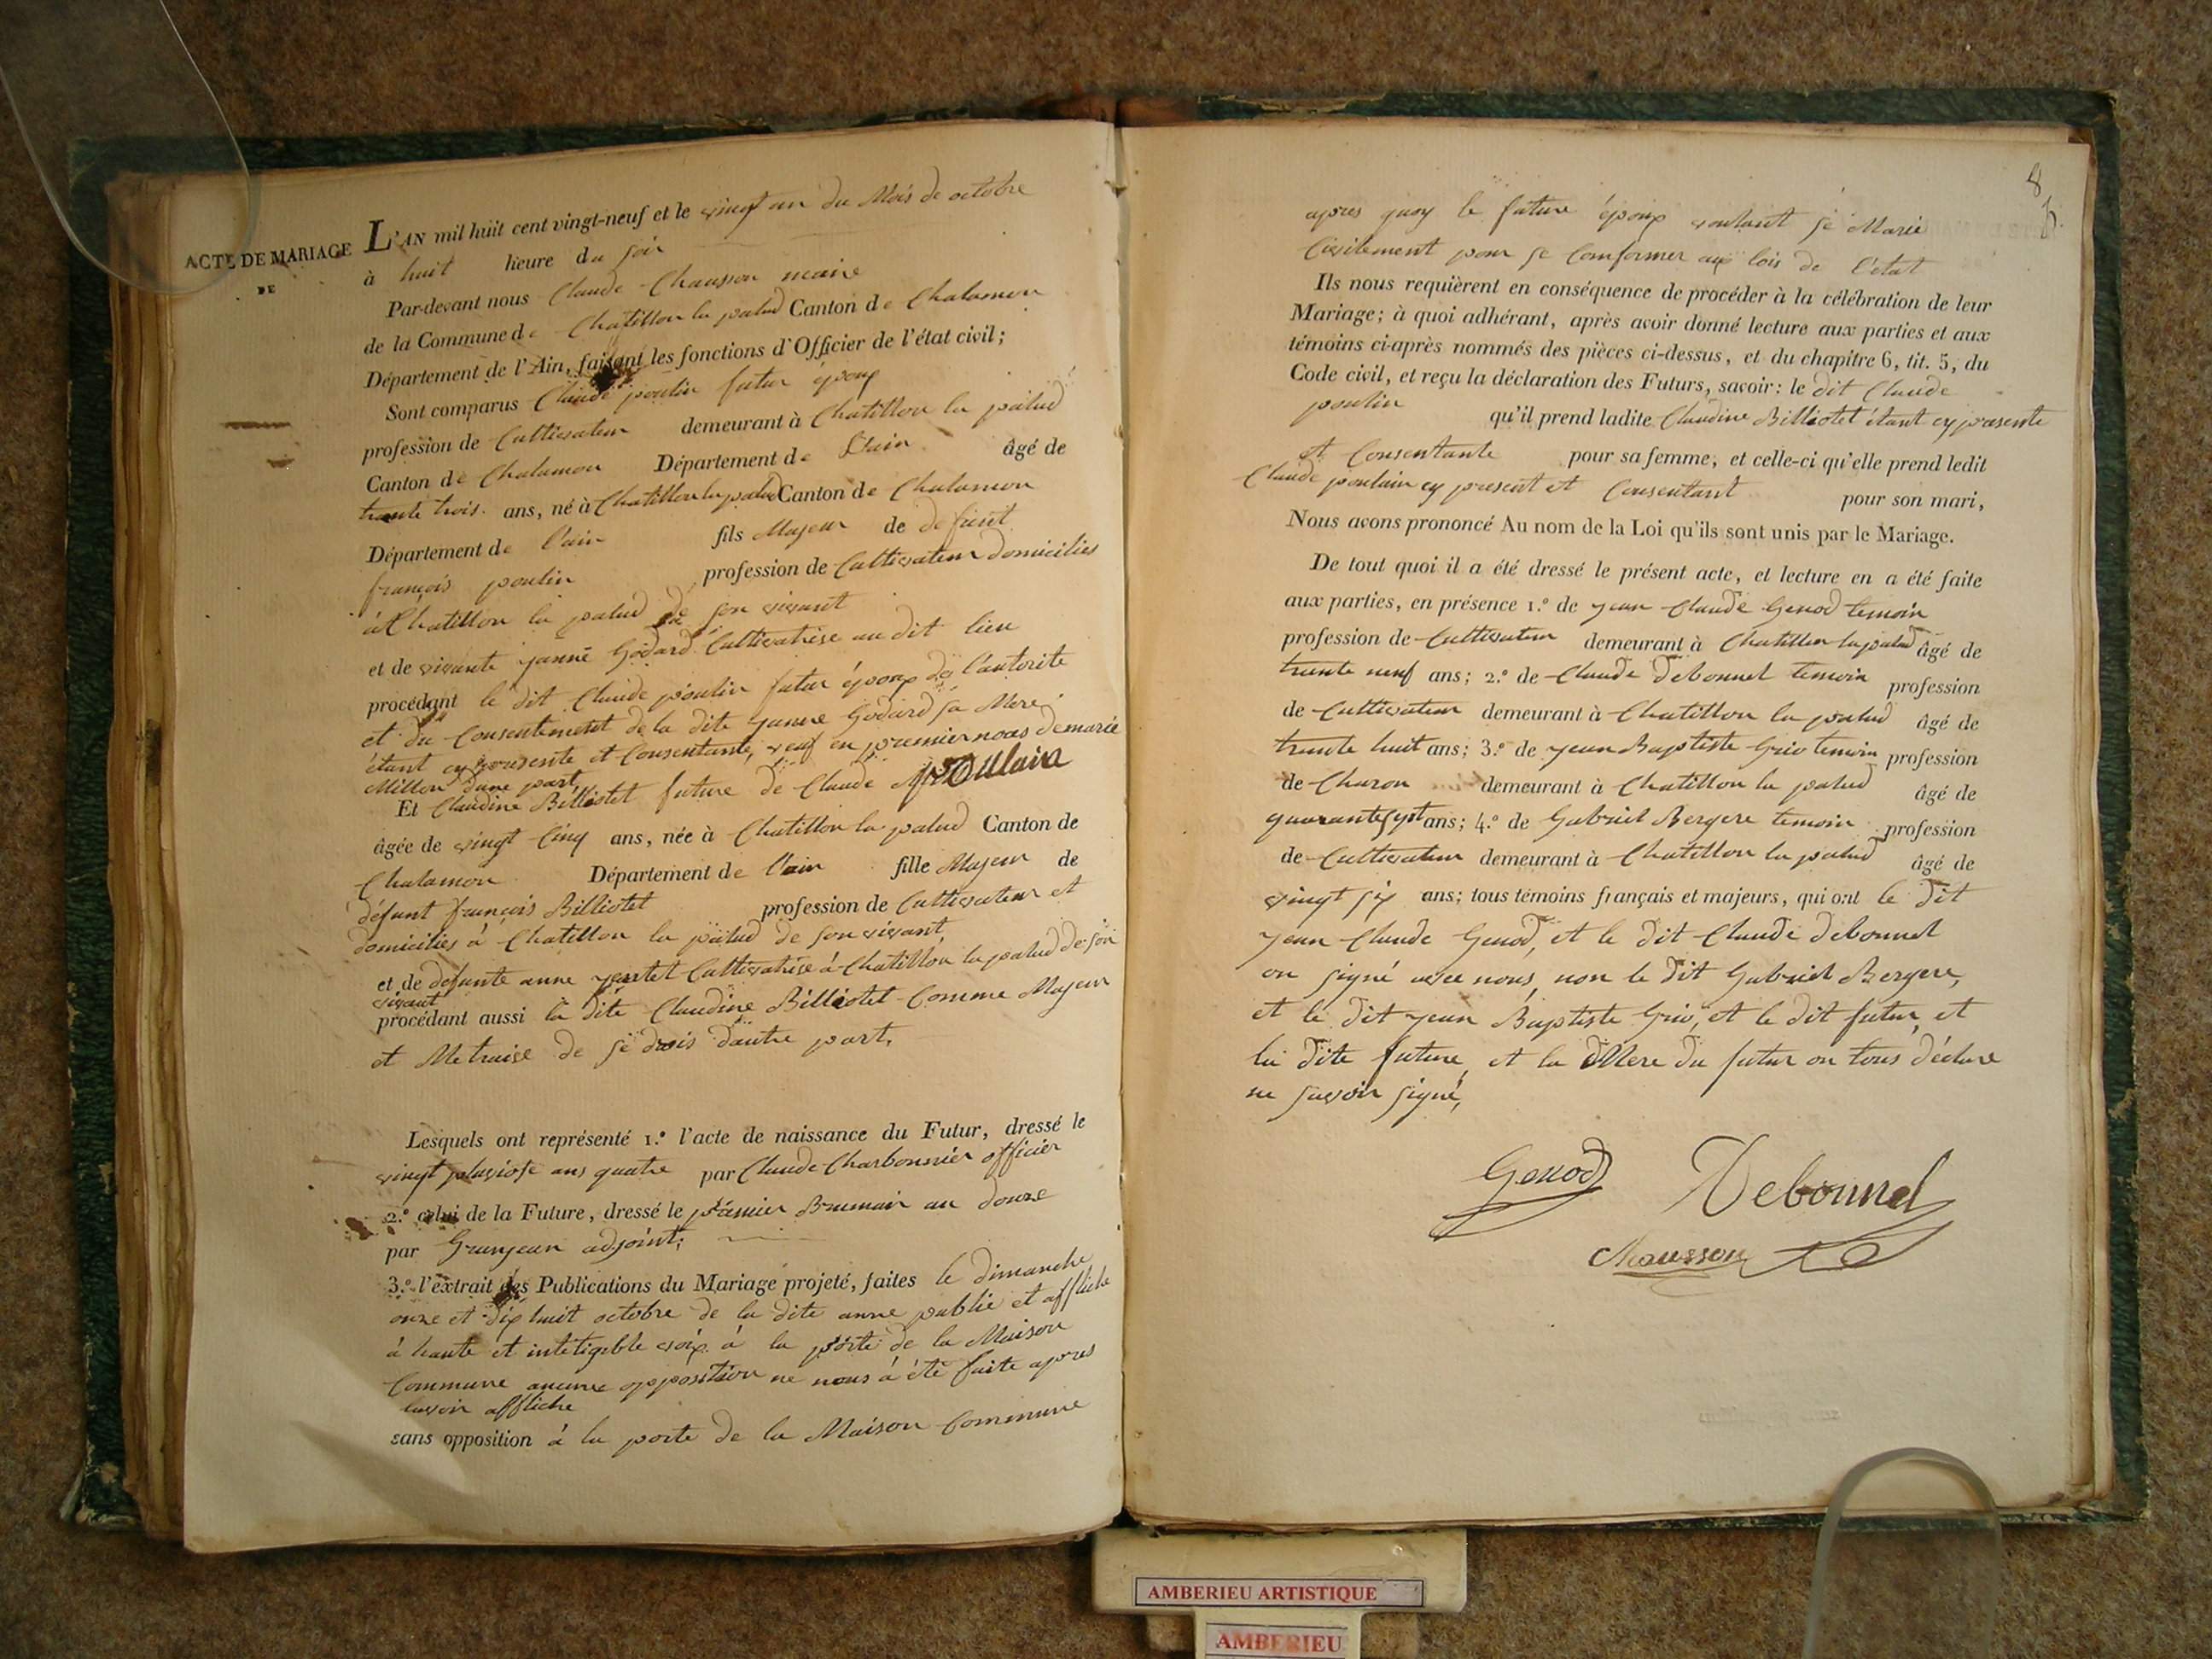 ACTE DE MARIAGE
DE
L'AN mil huit cent vingt-neuf et le vingt un du Mois de octobre
à huit heure du soir
Par-devant nous Claude Chausson maire
de la Commune de Chatillon la palud Canton de Chalamon
Département de l'Ain, faisant les fonctions d'Officier de l'état civil;
Sont comparus Claude poulin futur époux
profession de Cultivateur demeurant à Chatillon la palud
Canton de Chalamon Département de L'ain âgé de
trante trois ans, né à Chatillon la palud Canton de Chalamon
Département de l'ain fils Majeur de defunt
françois poulin profession de Cultivateur domicilies
à Chatillon la palud de son vivant
et de vivante janne Godard Cultivatrise au dit lieu
procédant le dit Claude poulin futur époux de l'autorite
et du Consentement de la dite janne Godard sa Mere
étant cy presente et Consentante, veuf en premier noces de marie
Millon d'une part,
Et Claudine Billiotet future de Claude poulain
âgée de vingt Cinq ans, née à Chatillon la palud Canton de
Chalamon Département de l'ain fille Majeur de
défunt françois Billiotet profession de Cultivateur et
domicilies à Chatillon la palud de son vivant
et de defunte anne Cultivatrise à Chatillon la palud de son
vivant
procédant aussi la dite Claudine Billiotet Comme Majeur
et Metraise de sé drois d'autre part,
Lesquels ont représenté 1.º l'acte de naissance du Futur, dressé le
vingt pluviose ans quatre par Claude Charbonnier officier
2.º celui de la Future, dressé le prémier Brumair an douze
par Granjean adjoint;
3.º l'extrait des Publications du Mariage projeté, faites le dimanche
onze et dix huit octobre de la dite anne publie et affliche
à haute et inteligible voix à la porte de la Maison
Commune aucune opposition ne nous à été faite apres
lavoir affliche
sans opposition à la porte de la Maison Commune
8
apres quoy le future époux voulant sé Marié
Civilement pour se Comformer aux lois de l'état
Ils nous requièrent en conséquence de procéder à la célébration de leur
Mariage; à quoi adhérant, après avoir donné lecture aux parties et aux
témoins ci-après nommés des pièces ci-dessus, et du chapitre 6, tit. 5, du
Code civil, et reçu la déclaration des Futurs, savoir: le dit Claude
poulin qu'il prend ladite Claudine Billiotet étant cy presente
et Consentante pour sa femme, et celle-ci qu'elle prend ledit
Claude poulain cy present et Consentant pour son mari,
Nous avons prononcé Au nom de la Loi qu'ils sont unis par le Mariage.
De tout quoi il a été dressé le présent acte, et lecture en a été faite
aux parties, en présence 1.º de jean Claude Genod temoin
profession de Cultivateur demeurant à Chatillon la palud âgé de
trente neuf ans; 2.º de Claude Debonnel temoin profession
de Cultivateur demeurant à Chatillon la palud âgé de
trante huit ans; 3.º de jean Baptiste Griv temoin profession
de Charon demeurant à Chatillon la palud âgé de
quarante sept ans; 4.º de Gabriel Bergere temoin profession
de Cultivateur demeurant à Chatillon la palud âgé de
vingt six ans; tous témoins français et majeurs, qui ont le dit
jean Claude Genod, et le dit Claude debonnel
on signé avec nous, non le dit Gabriel Bergere,
et le dit jean Baptiste Griv, et le dit futur, et
la dite future, et la Mere du futur on tous déclare
ne savoir signé,
Genod Debonnel
Chausson
AMBERIEU ARTISTIQUE
AMBERIEU